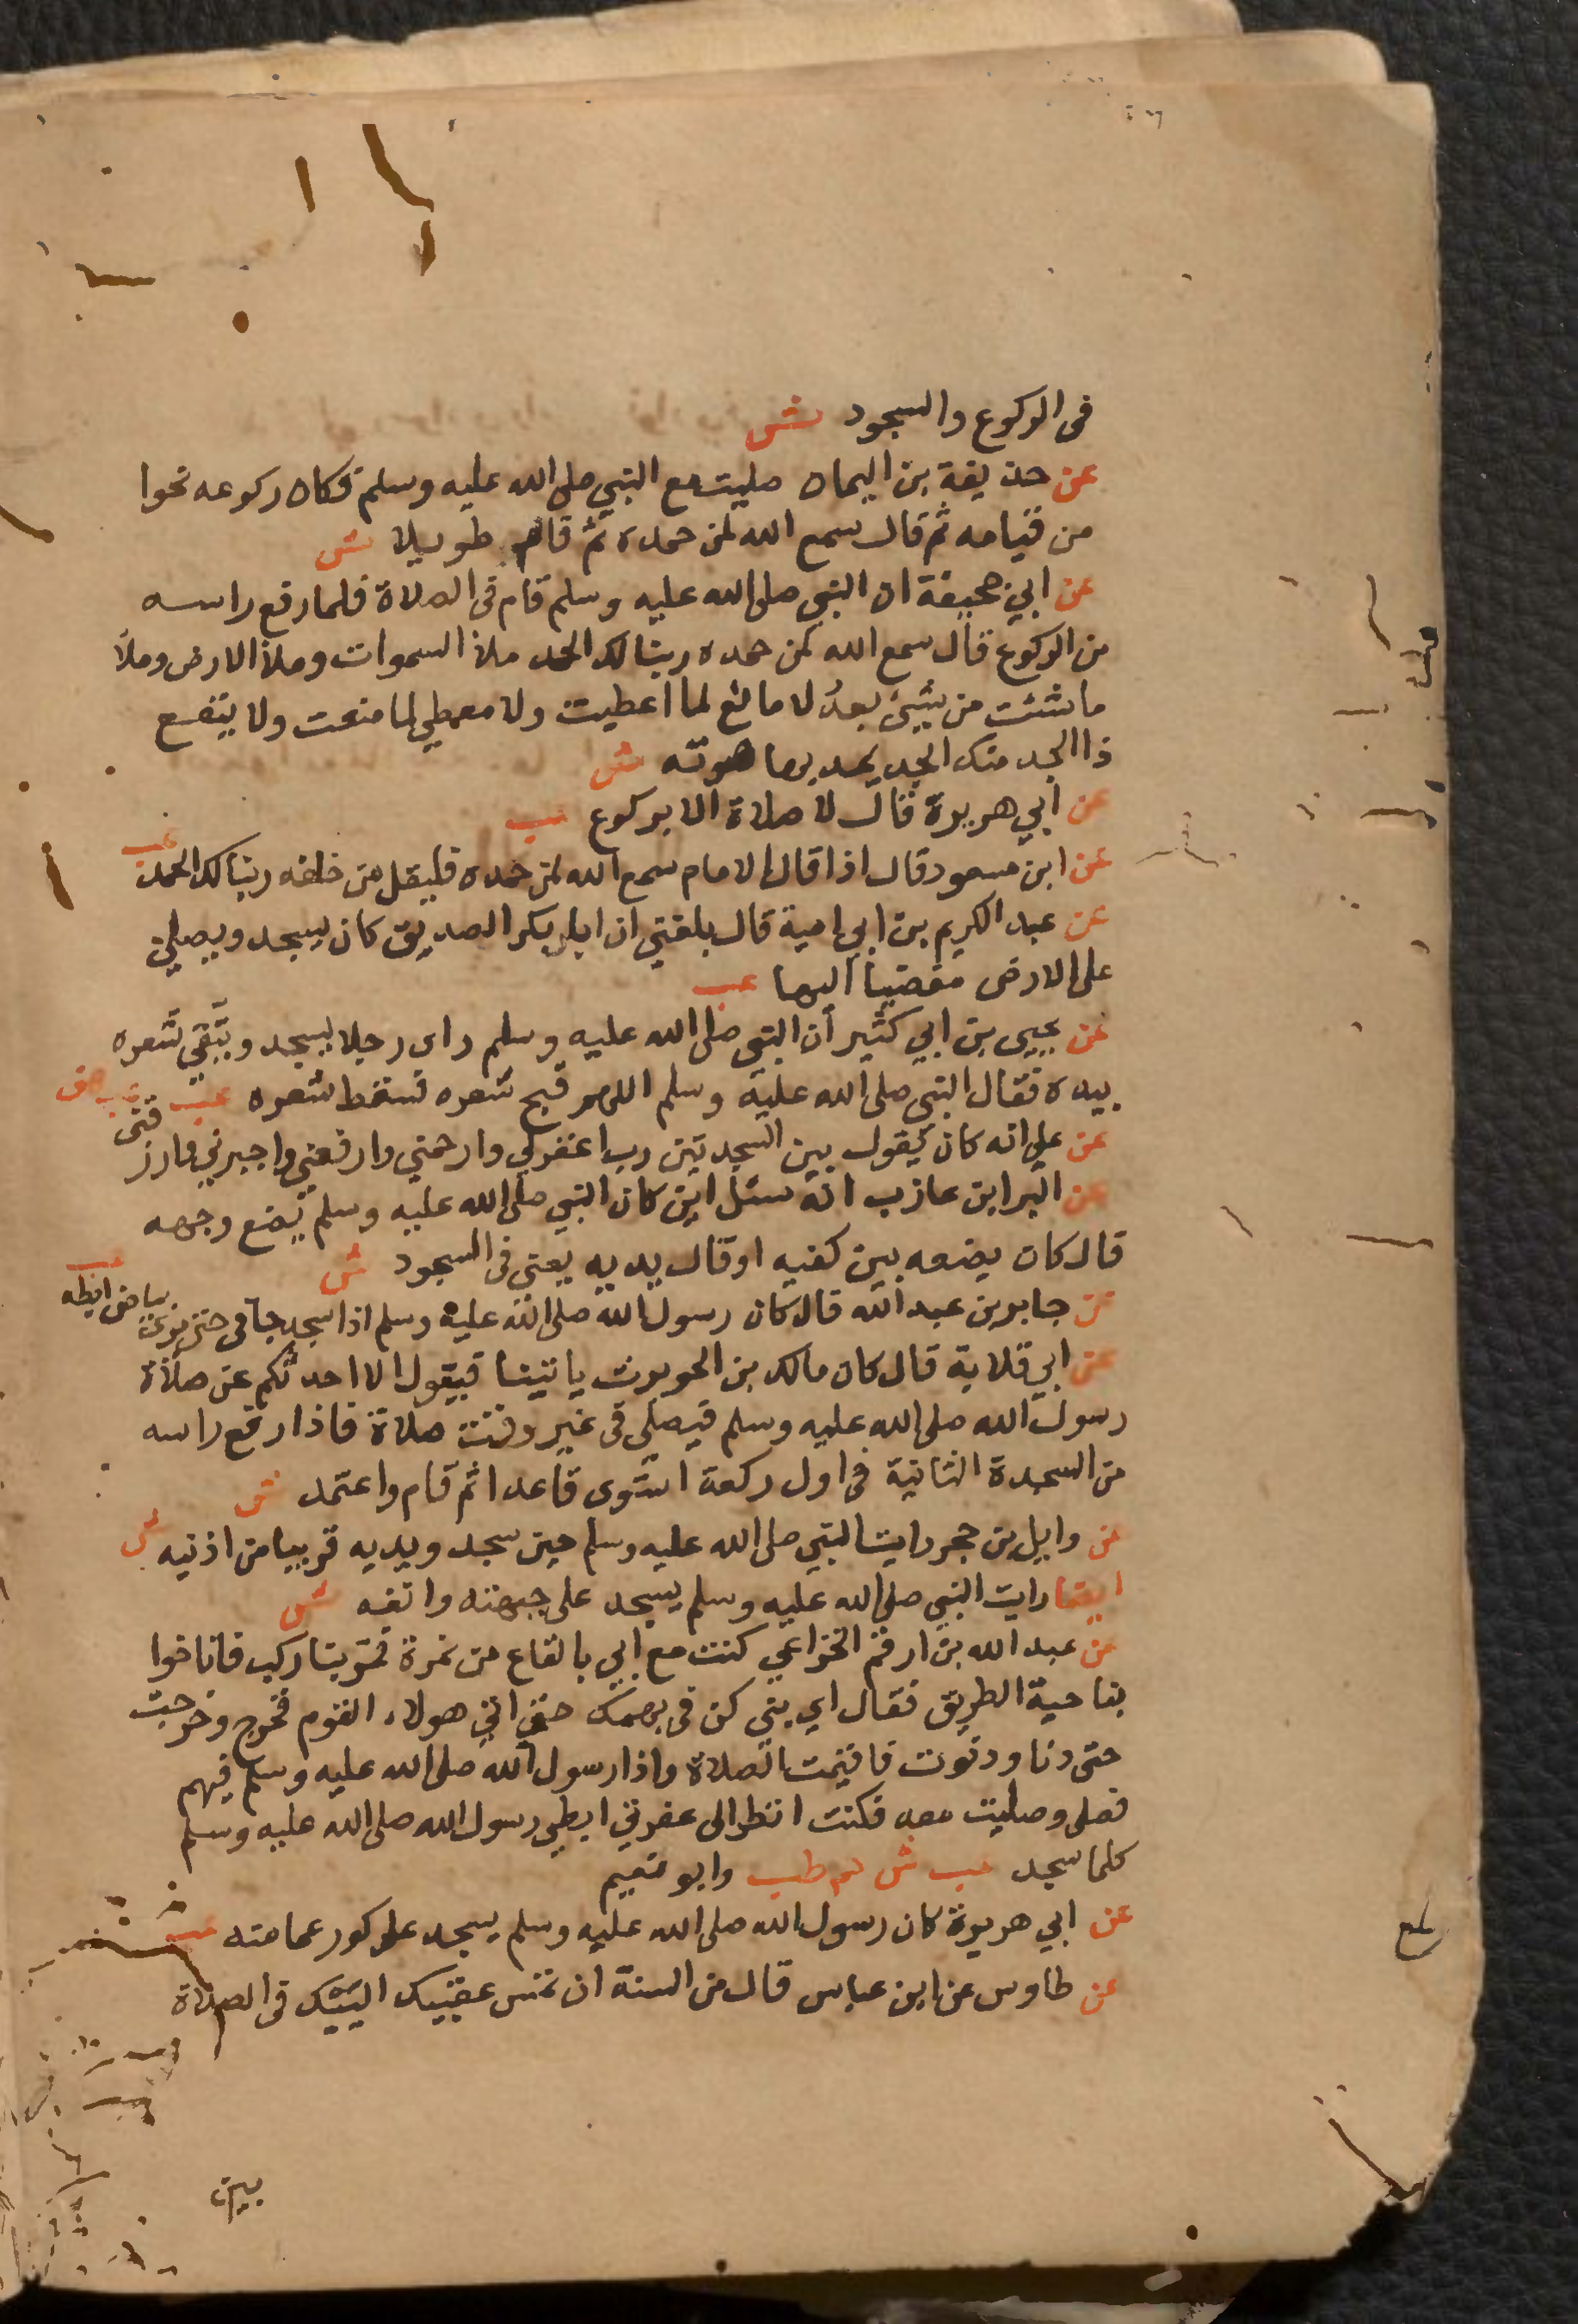 فى الركوع والسجود ش
عن حذيفة بن اليمان صليت مع النبي صلى الله عليه وسلم فكان ركوعه نحوا
من قيامه ثم قال سمع الله لمن حمده ثم قام طويلا ش
عن ابي جحيفة ان النبي صلى الله عليه وسلم قام فى الصلاة فلما رفع راسه
من الركوع قال سمع الله لمن حمده ربنا لك الحمد ملأ السموات وملأ الارض وملأ
ما شئت من شيئ بعد لا مانع لما اعطيت ولا معطي لما منعت ولا ينفع
ذا الجد منك الجد يمد بها صوته ش
عن ابي هريرة قال لا صلاة الا بركوع عب
عن ابن مسعود قال اذا قال الامام سمع الله لمن حمده فليقل من خلفه ربنا لك الحمد عب
عن عبد الكريم بن ابي امية قال بلغني ان ابا بكر الصديق كان يسجد ويصلي
على الارض مفضيا اليها عب
عن يحيى بن ابي كثير أن النبي صلى الله عليه وسلم راى رجلا يسجد ويتقي شعره
بيده فقال النبي صلى الله عليه وسلم اللهم قبح شعره فسقط شعره عب
عن علي انه كان يقول بين السجدتين رب اغفرلي وارحمني وارفعني واجبرني وارزقني عب هق
عن البرا بن عازب انه سئل اين كان النبي صلى الله عليه وسلم يضع وجهه
قال كان يضعه بين كفيه او قال يديه يعني فى السجود ش
عن جابر بن عبد الله قال كان رسول الله صلى الله عليه وسلم اذا سجد جافى حتى يرى بياض ابطه عب
عن ابي قلابة قال كان مالك بن الحويرث ياتينا فيقول الا احدثكم عن صلاة
رسول الله صلى الله عليه وسلم فيصلي فى غير وقت صلاة فاذا رفع راسه
من السجدة الثانية فى اول ركعة استوى قاعدا ثم قام واعتمد ش
عن وايل بن حجر رايت النبي صلى الله عليه وسلم حين سجد ويديه قريبا من اذنيه ش
ايضا رايت النبي صلى الله عليه وسلم يسجد على جبهته وانفه ش
عن عبد الله بن ارقم الخزاعي كنت مع ابي بالقاع من نمرة فمر بنا ركب فاناخوا
بناحية الطريق فقال اي بني كن فى بهمك حتى اتي هولاء القوم فخرج وخرجت
حتى دنا ودنوت فاقيمت الصلاة واذا رسول الله صلى الله عليه وسلم فيهم
فصلى وصليت معه فكنت انظر الى عفرتي ابطي رسول الله صلى الله عليه وسلم
كلما سجد عب ش حم طب وابو نعيم
عن ابي هريرة كان رسول الله صلى الله عليه وسلم يسجد على كور عمامته عب
عن طاوس عن ابن عباس قال من السنة ان تمس عقبيك اليتيك فى الصلاة
بين